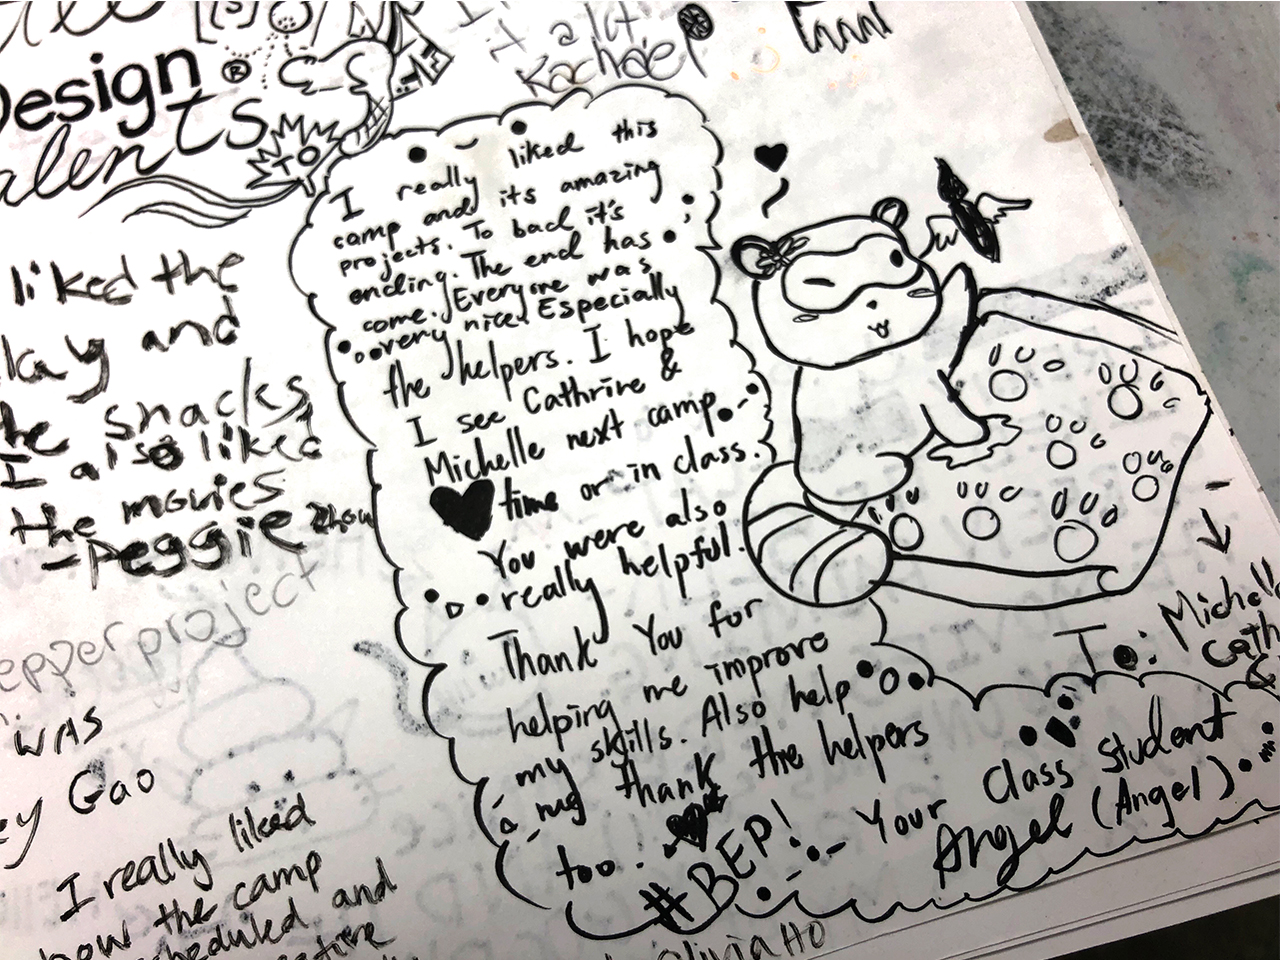 Design ®
TO
I
Rachael
liked the
and
snacks
I also liked
the movies
- Peggie Zhou
I really liked this
camp and its amazing
projects. To bad it's
ending. The end has
come. Everyone was
very nice. Especially
the helpers. I hope
I see Cathrine &
Michelle next camp
time or in class.
You were also
really helpful.
Thank You for
helping me improve
my skills. Also help
me thank the helpers
too!
#BEP!
- Your Class student
Angel (Angel)
To:
&
project
was
Gao
I really liked
how the camp
and
Olivia Ho